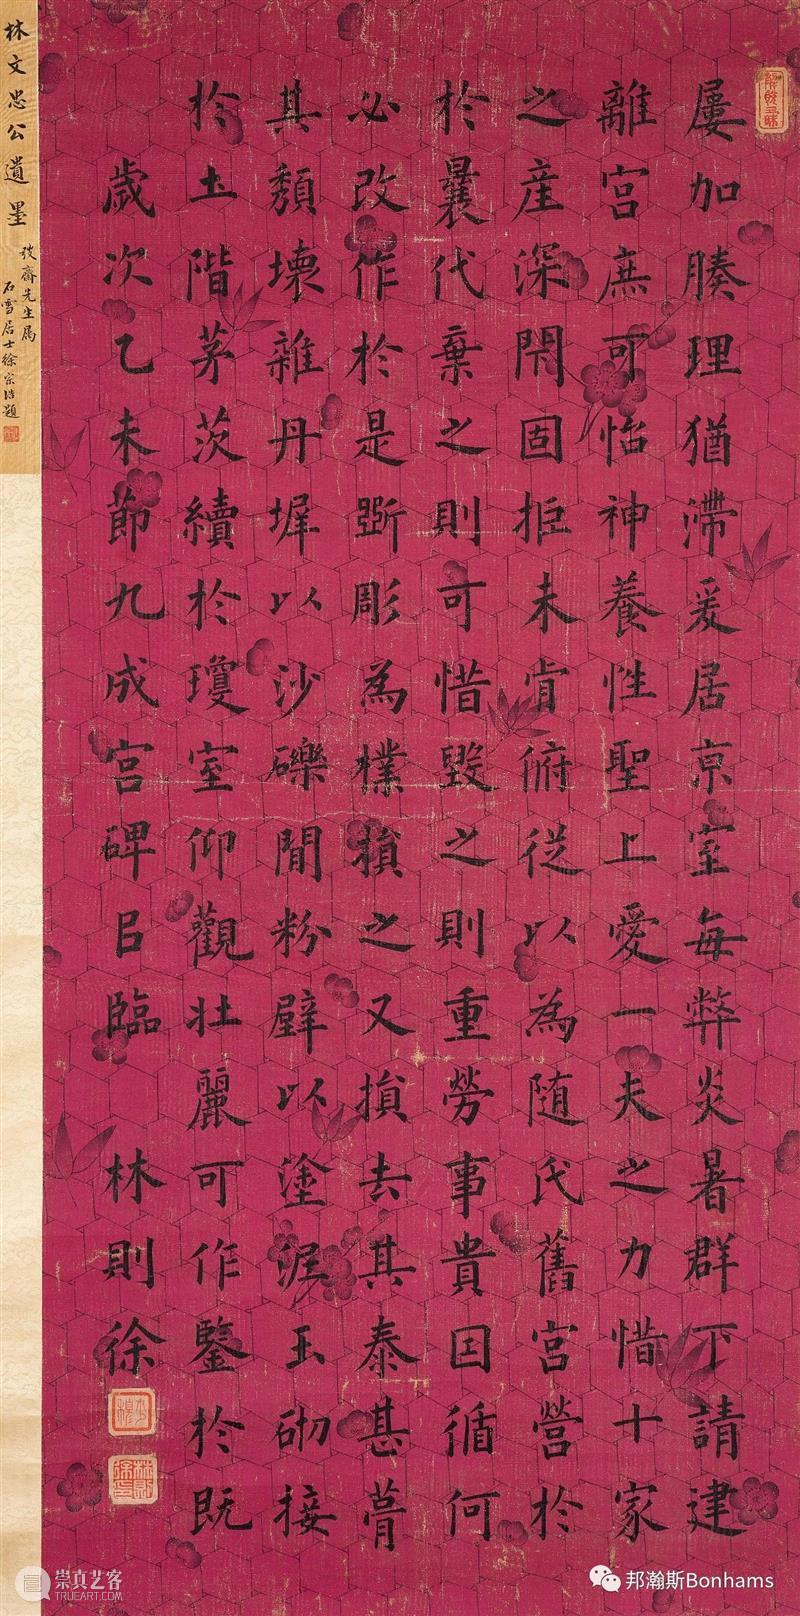 屢加腠理猶滯爰居京室每弊炎暑群下請建
離宮庶可怡神養性聖上愛一夫之力惜十家
之産深閇固拒未肯俯從以為随氏舊宮營於
於曩代棄之則可惜毀之則重勞事貴因循何
必改作於是斲彫為樸損之又損去其泰甚葺
其頹壞雜丹墀以沙礫間粉壁以塗泥玉砌接
於土階茅茨續於瓊室仰觀壯麗可作鑒於既
歲次乙未節九成宮碑㠯臨 林則徐
林則徐印
林文忠公遺墨
弢齋先生属
石雪居士徐宗浩題
崇真艺客
HTTP://WWW.TRUEART.COM
邦瀚斯Bonhams